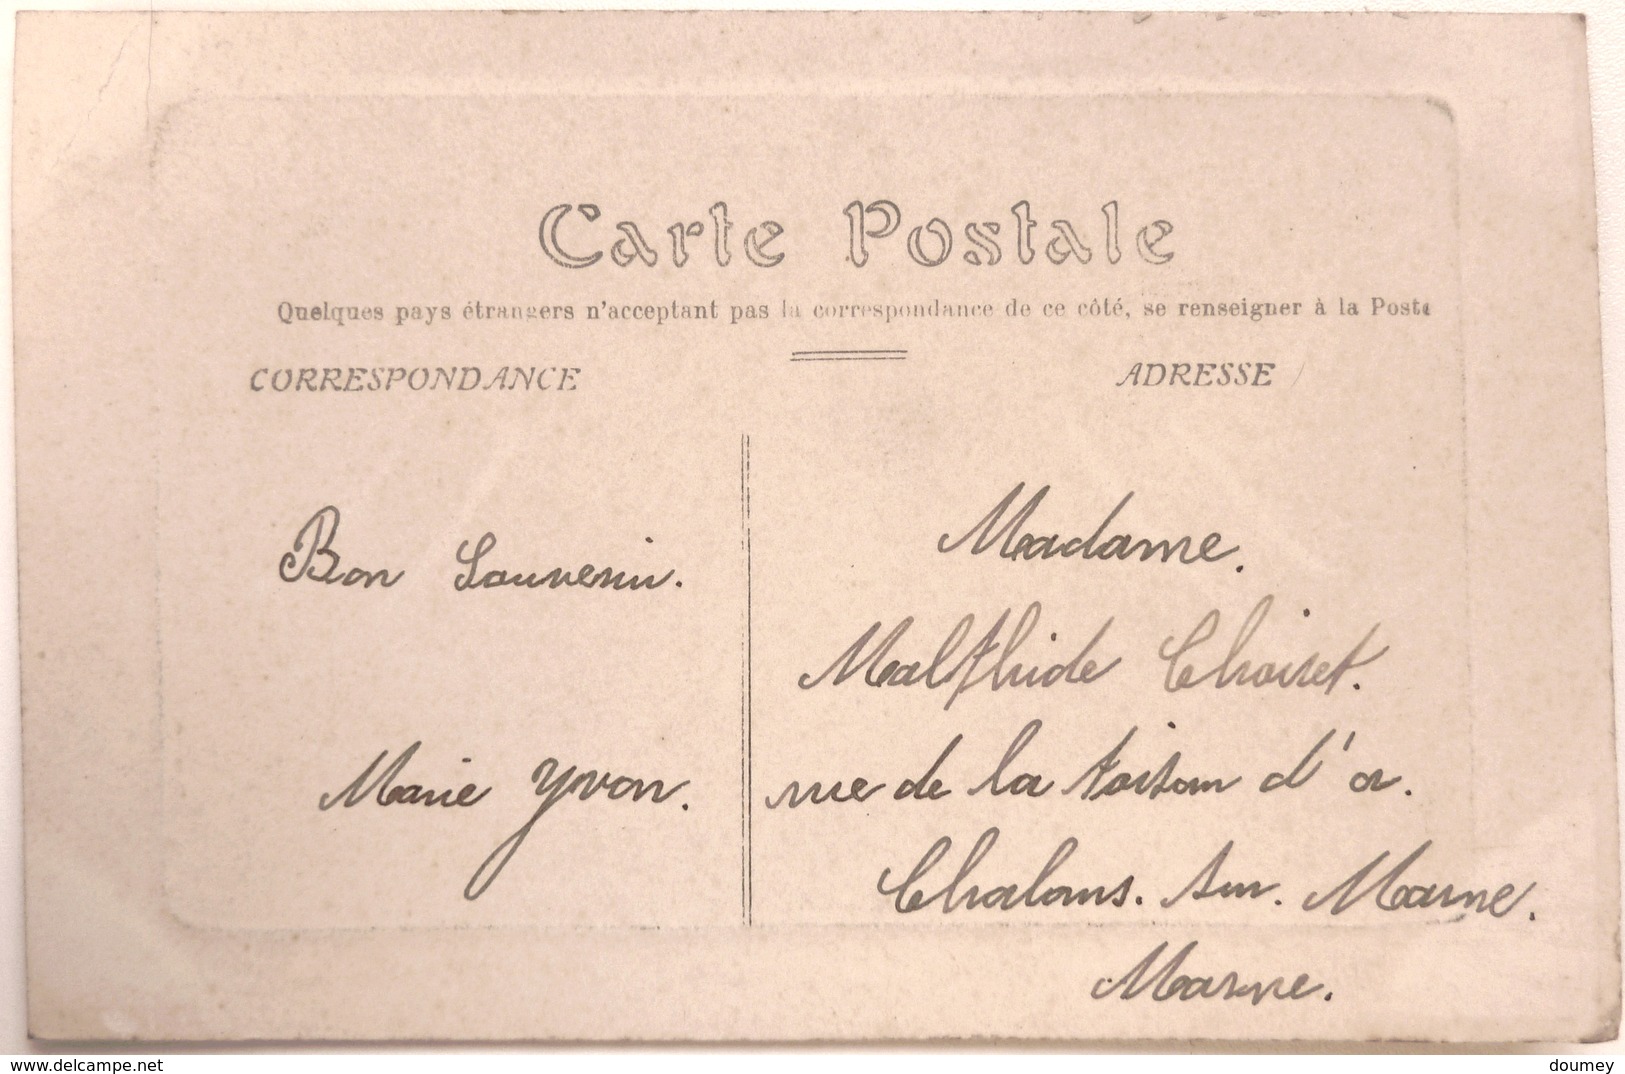 Carte Postale
Quelques pays étrangers n'acceptant pas la correspondance de ce côté, se renseigner à la Poste
CORRESPONDANCE
ADRESSE
Bon Souvenir.
Marie Yvon.
Madame.
Malthide Choiset.
rue de la toison d'or.
Chalons. sur. Marne.
Marne.
delcampe.net
doumey